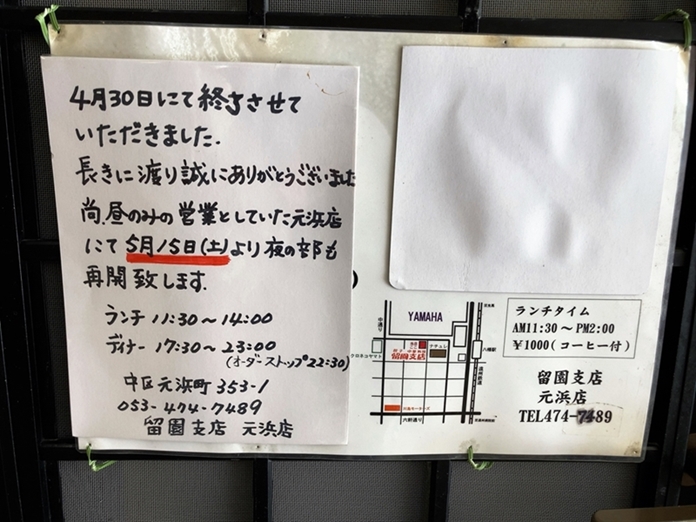 4月30日にて終了させて
いただきました.
長きに渡り誠にありがとうございました
尚.昼のみの営業としていた元浜店
にて5月15日(土)より夜の部も
再開致します.
ランチ 11:30〜14:00
ディナー 17:30〜23:00
(オーダーストップ22:30)
中区元浜町353-1
053-474-7489
留園支店 元浜店
YAMAHA
中通り
ナチュレ
留園支店
クロネコヤマト
八幡駅
六間通り
ランチタイム
AM11:30～PM2:00
¥1000(コーヒー付)
留園支店
元浜店
TEL474-7489